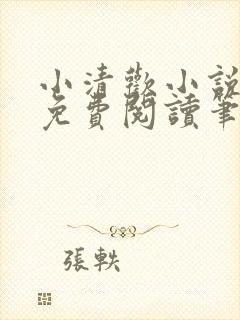 小清歡小說
免費閱讀筆
張軼